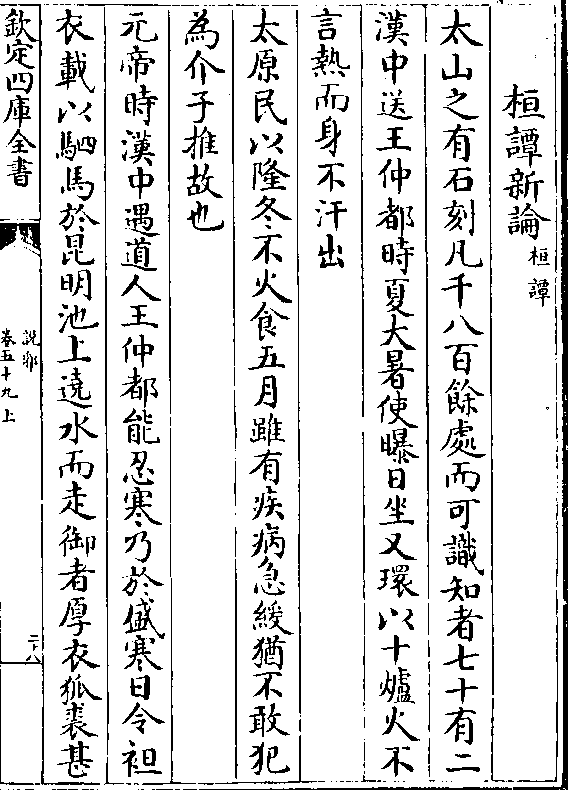 桓譚新論桓譚
太山之有石刻凡千八百餘處而可識知者七十有二
漢中送王仲都時夏大暑使曝日坐又環以十爐火不
言熱而身不汗出
太原民以隆冬不火食五月雖有疾病急緩猶不敢犯
為介子推故也
元帝時漢中遇道人王仲都能忍寒乃於盛寒日令袒
衣載以駟馬於昆明池上遶水而走御者厚衣狐裘甚
欽定四庫全書
說郛
卷五十九上
二十八